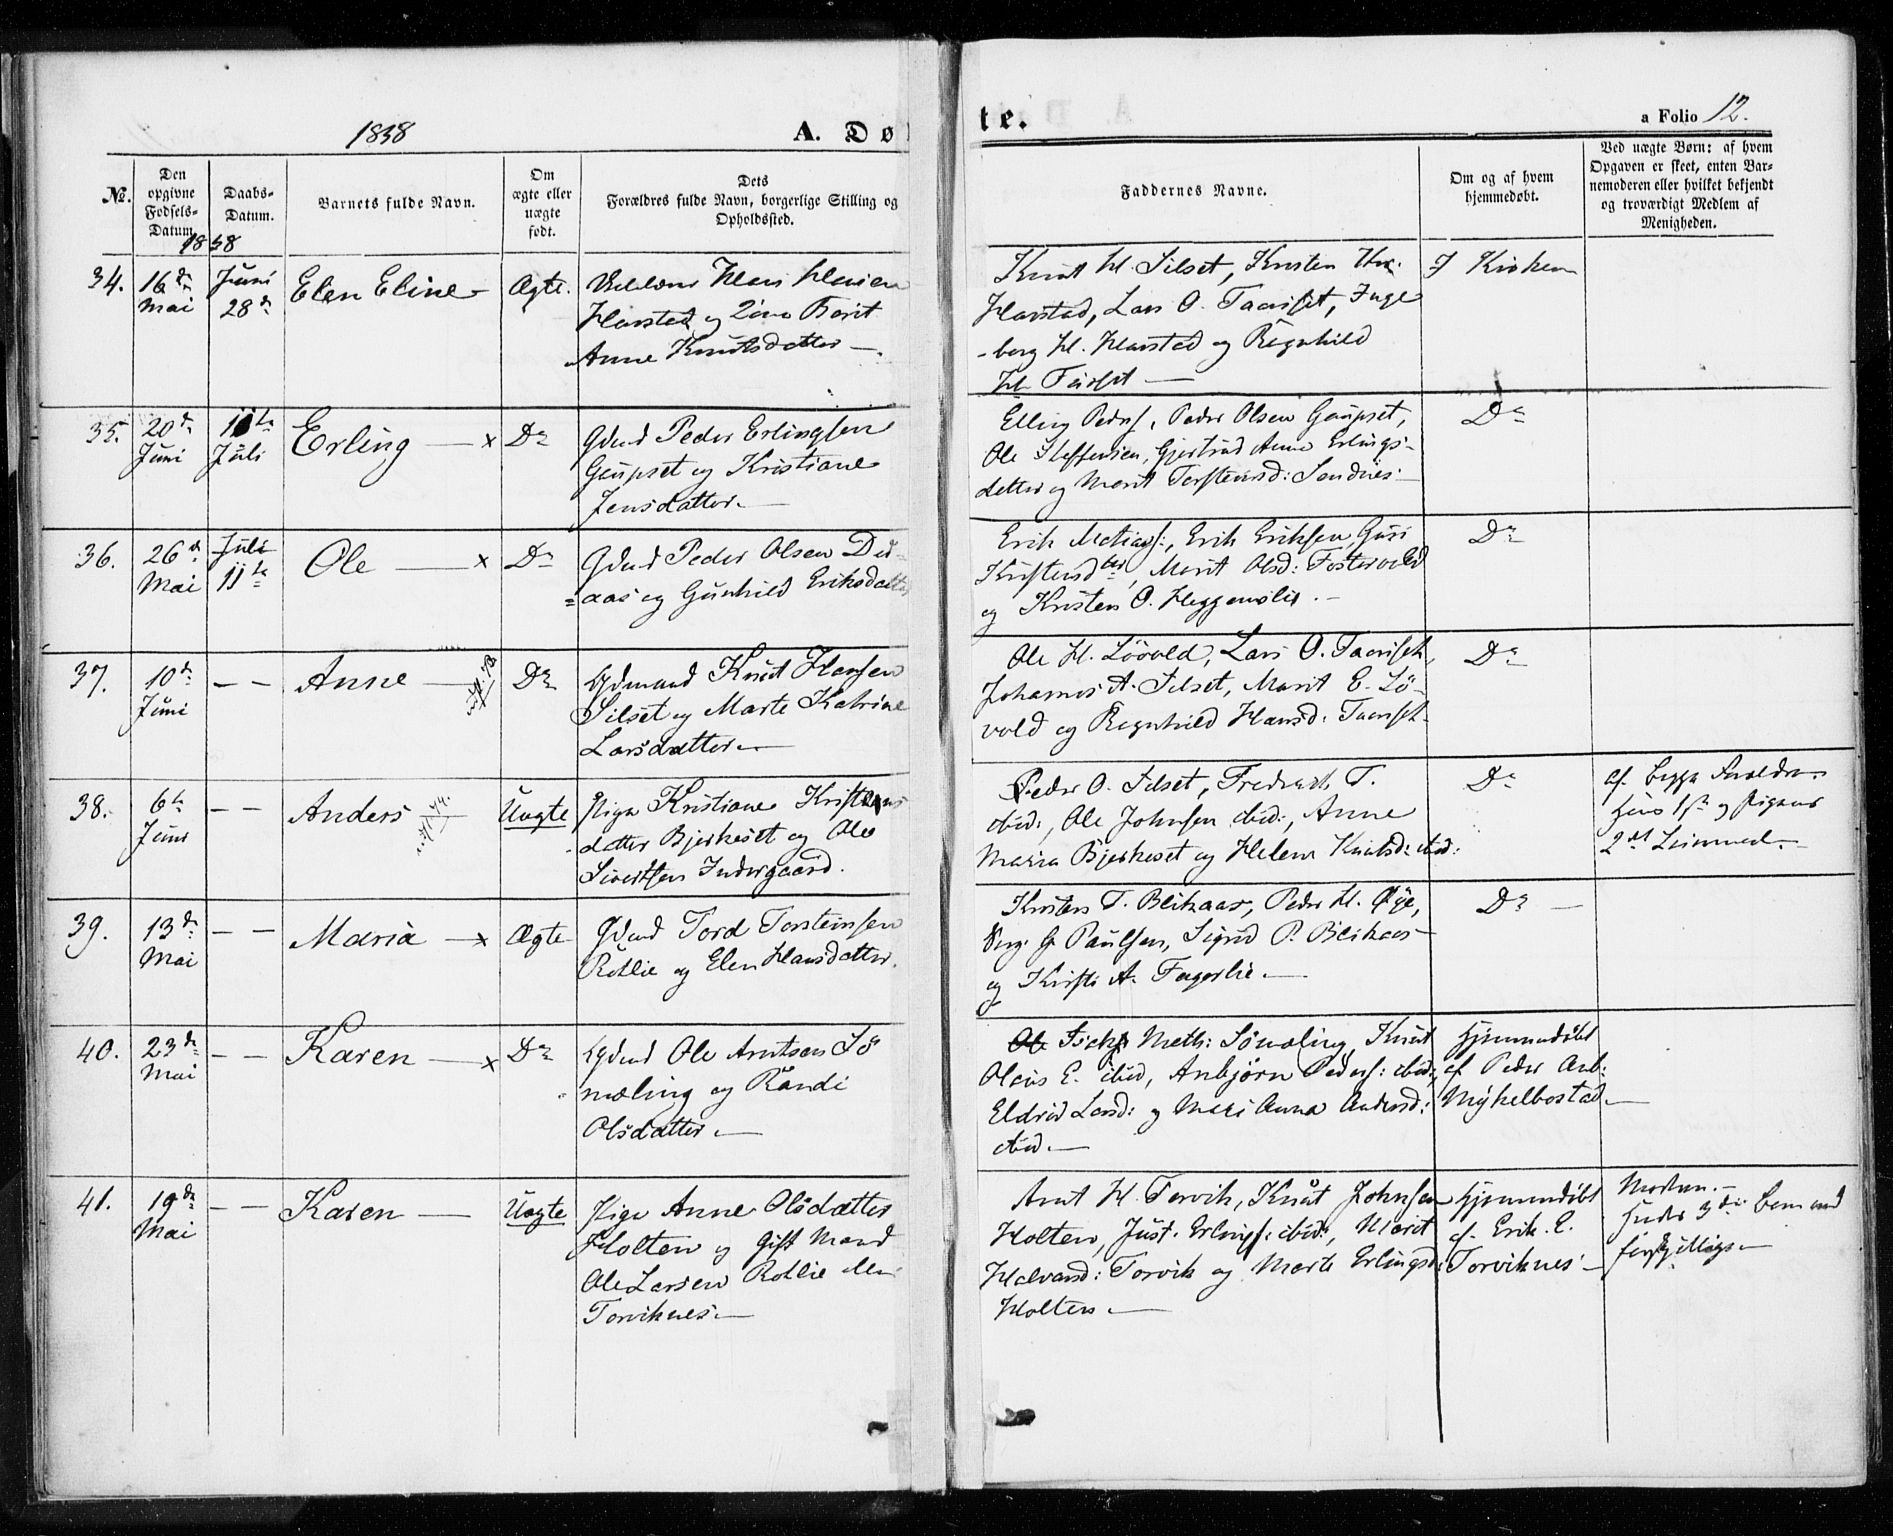 1858
A. Døbte.
a Folio 12.
No.
Den opgivne Fødsels-Datum.
Daabs-Datum.
Barnets fulde Navn.
Om ægte eller uægte født.
Dets Forældres fulde Navn, borgerlige Stilling og Opholdssted.
Faddernes Navne.
Om og af hvem hjemmedøbt.
Ved uægte Børn: af hvem Opgaven er skeet, enten Barnemoderen eller hvilket bekjendt og troværdigt Medlem af Menigheden.
1858
34. 16de Mai
Juni 28de
Elen Eline
Ægte.
Hans Hansen
Harstad og Berit
Anne Knutsdatter
Knut H. Silset, Kristen
Harstad, Lars O. Taarset, Inge
-borg H. Harstad og Ragnhild
H.
I Kirken
35. 20de Juni
11te Juli
Erling x
Do
Gdmd Peder Erlingsen
Gaupset og Kristiane
Jensdatter.
Elling Peders., Peder Olsen Gaupset,
Ole Steffensen, Gjertrud Anne Erlings-
datter og Marit Torstensd: Sandnes.
Do
36. 26de Mai
Juli 11te
Ole x
Do
Gdmd Peder Olsen Dur-
=aas og Gunhild Eriksdatter
Erik Matias:, Erik Eriksen, Guri
Kristensdtr, Marit Olsd: Fostervold
og Kristen O. Heggemslie.
Do
37. 10de Juni
— —
Anne
Do
Gdmand Knut Hansen
Silset og Marte Katrine
Larsdatter.
Ole H. Løvold, Lars O. Taarset,
Johannes A. Silset, Marit E. Lø-
vold og Ragnhild Hansd: Taarset.
Do
38. 6te Juni
— —
Anders
Uægte
Pige Kristiane Kristens
datter Bjerkeset og Ole
Sivertsen Indergaard.
Peder O. Silset, Fredrik T.
ibid:, Ole Johnsen ibid:, Anne
Maria Bjerkeset og Helene Knutsd: ibid:
Do
af begge Forældre.
Hans 1ste og Pigens
2det Leiermaal.
39. 13de Mai
— —
Maria x
Ægte
Gdmd Tord Torsteinsen
Rotlie og Elen Hansdatter.
Kristen T. Blikaas, Peder M. Øye,
G. Paulsen, Sigrid P. Blikaas
og Kirsti A. Fagerlie.
Do
40. 23de Mai
— —
Karen x
Do
Gdmd Ole Arntsen Sø
mæling og Randi
Olsdatter.
Meth: Sømæling, Knut
Olaus E. ibid, Anbjørn Peders: ibid:,
Eldrid Larsd: og Mari Anna Andersd:
ibid.
Hjemmedøbt
af Peder Anb:
Mykelbostad.
41. 19de Mai
— —
Karen
Uægte
Pige Anne Olsdatter
Holten og Gift Mand
Ole Larsen Rotlie
Torviknes.
Arnt H. Torvik, Knut Johnsen
Holten, Just. Erlings: ibid:, Marit
Halvards: Torvik og Marte Erlingsd:
Holten.
Hjemmedøbt
af Erik E.
Torviknes
Moderen.
3die